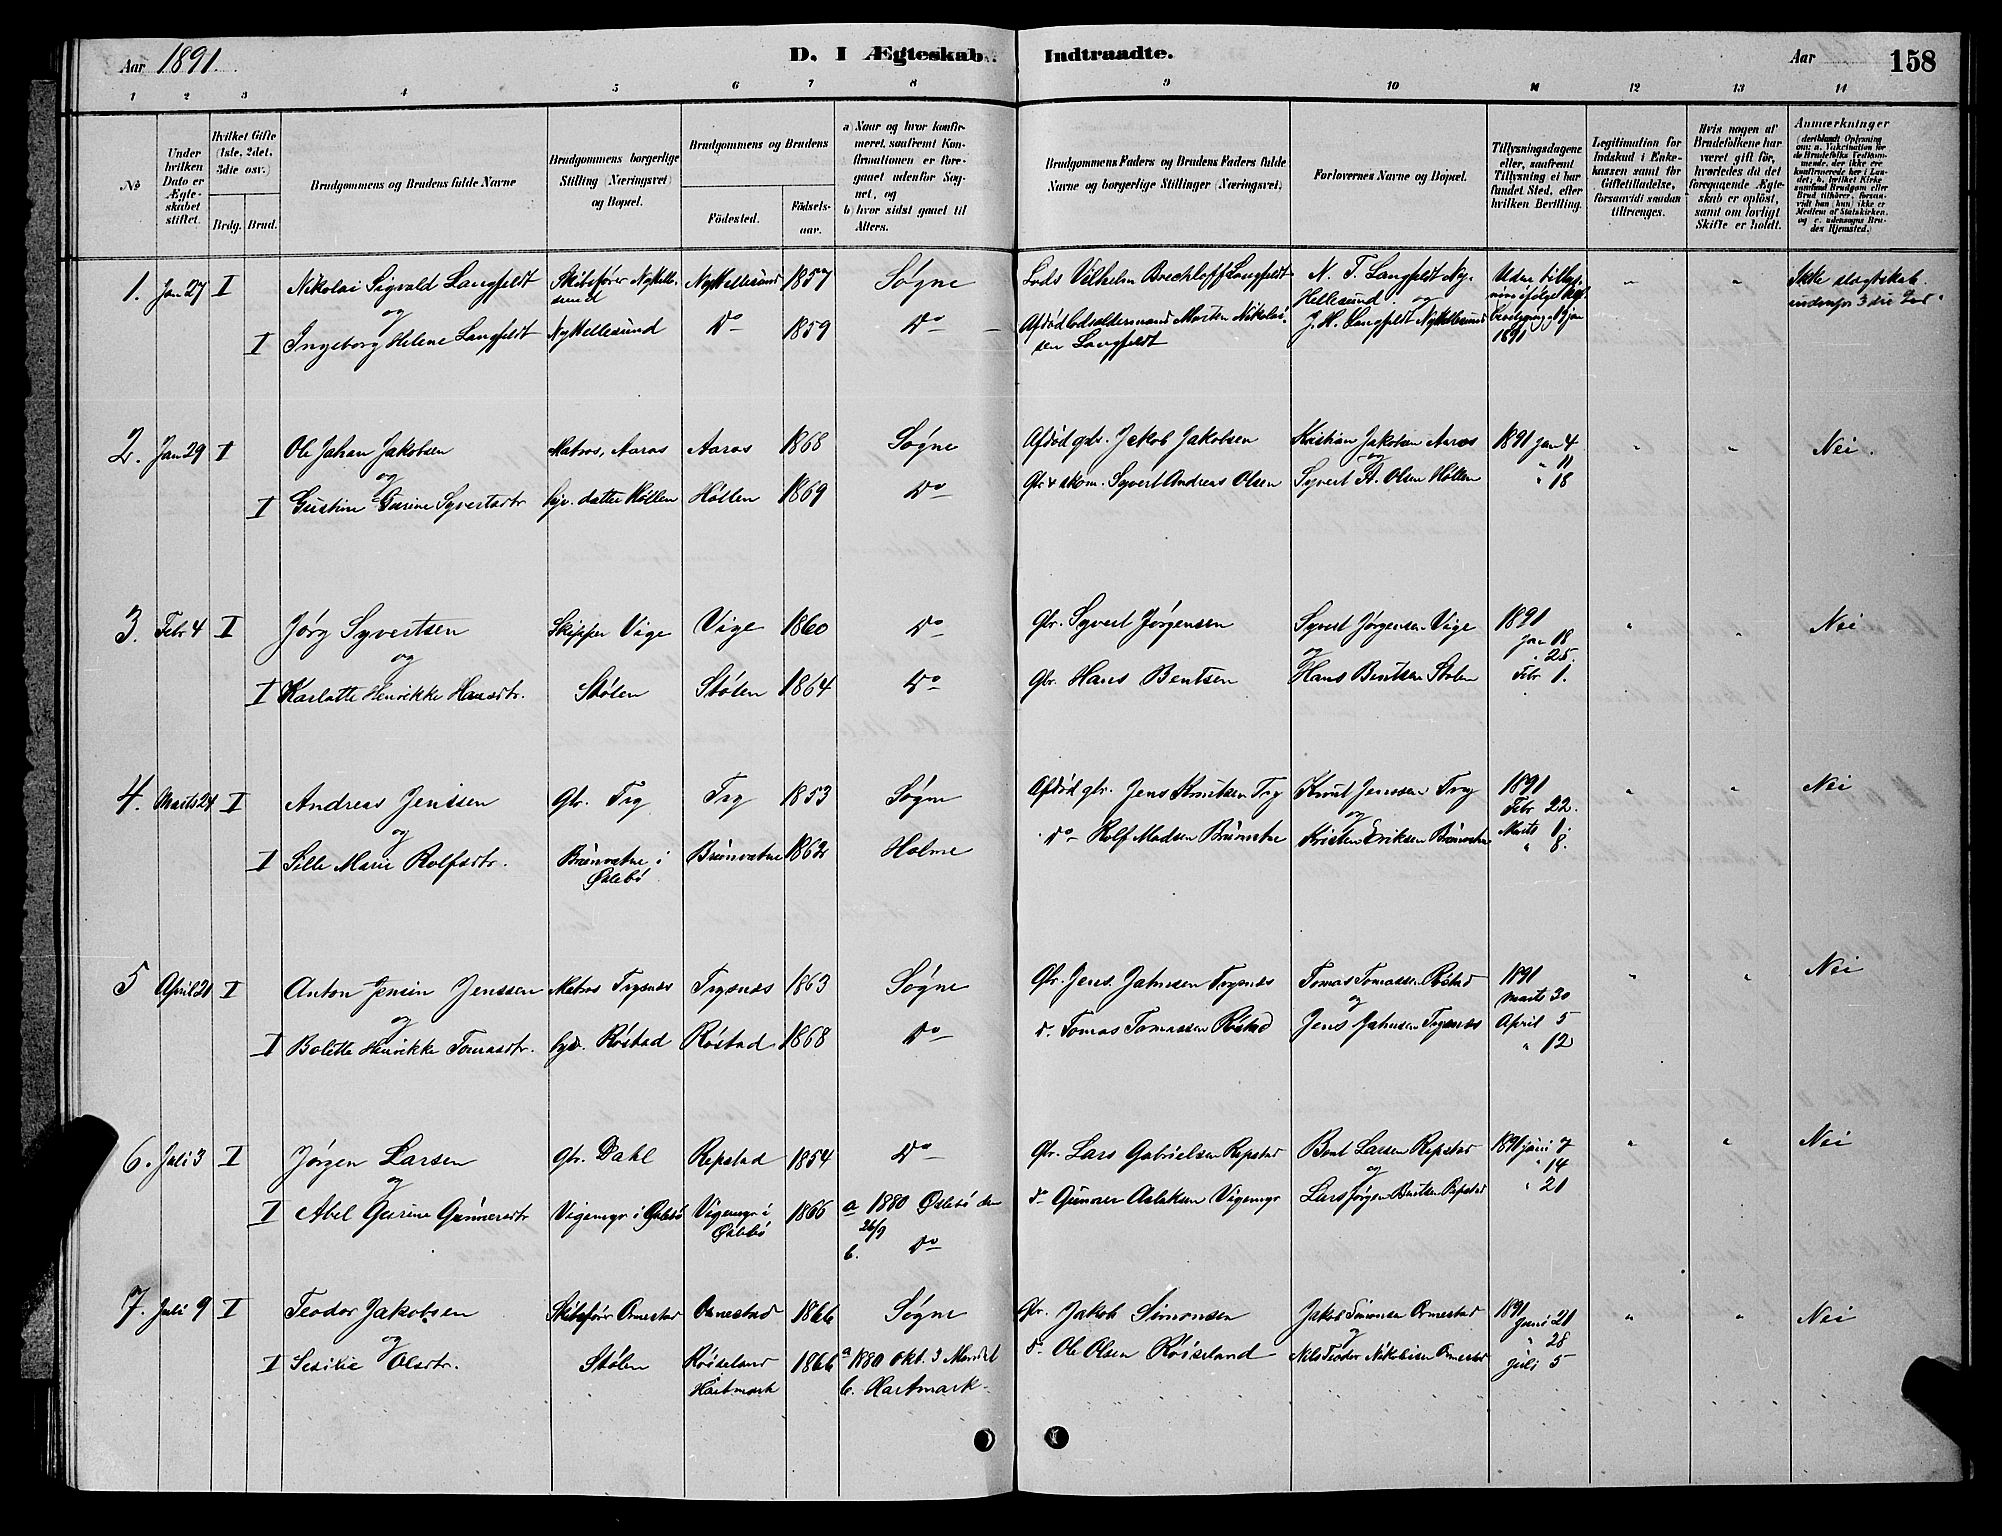 Aar 1891. D. I Ægteskab Indtraadte. Aar 158
1 2 3 4 5 6 7 8 9 10 11 12 13 14
No
Under hvilken Dato er Ægteskabet stiftet.
Hvilket Gifte (1ste, 2det, 3die osv.)
Brdg. Brud.
Brudgommens og Brudens fulde Navne
Brudgommens borgerlige Stilling (Næringsvei) og Bopæl.
Brudgommens og Brudens
Födested. Födselsaar.
a) Naar og hvor konfirmeret, saafremt Konfirmationen er foregaaet udenfor Sognet, og
b) hvor sidst gaaet til Alters.
Brudgommens Faders og Brudens Faders fulde Navne og borgerlige Stillinger (Næringsvei)
Forlovernes Navne og Bopæl.
Tillysningsdagene eller, saafremt Tillysning ei har fundet Sted, efter hvilken Bevilling.
Legitimation for Indskud i Enkekassen samt for Giftetilladelse, forsaavidt saadan tiltrænges.
Hvis nogen af Brudefolkene har været gift för, hvorledes da det foregaaende Ægteskab er oplöst, samt om lovligt Skifte er holdt.
Anmærkninger
1. Jan 27 I Nikolai Sigvald Langfeldt Skibsfører Ny Hellesund Ny Hellesund 1857 Søgne Lods Vilhelm Langfeldt N. T. Langfeldt Ny Hellesund Ikke slægtskab
og
I Ingeborg Helene Langfeldt Ny Hellesund Do 1859 Do Afdød Lodsoldermand Morten Nikolaisen Langfeldt J. H. Langfeldt Ny Hellesund 1891
2. Jan 29 I Ole Johan Jakobsen Matros, Aaros Aaros 1868 Søgne Afdød gbr. Jakob Jakobsen Kristian Jakobsen Aaros 1891 Jan 4 " " Nei.
og og " 11
I Gustine Gurine Syvertsdtr Høllen Høllen 1869 Do Gbr & skom. Syvert Andreas Olsen Syvert A. Olsen Høllen " 18
3. Febr 4 I Jørg Syvertsen Skipper Vige Vige 1860 Do Gbr. Syvert Jørgensen Syvert Jørgensen Vige 1891 Jan 18 " " Nei
og og " 25.
I Karlotte Henrikke Hansdtr. Stølen Stølen 1864 Do Gbr. Hans Bentsen Hans Bentsen Stølen Febr 1.
4. Marts 24 I Andreas Jenssen Gbr. Try Try 1853 Søgne Afdød gbr. Jens Knutsen Try Knut Jenssen Try 1891 Febr 22. " " Nei
og og Marts 1.
I Sille Marie Rolfsdtr. Brønvatne i Øslebø Brønvatne 1862 Holme Do Rolf Madsen Brønvatne Kristen Eriksen Brønvatne " 8.
5 April 21 I Anton Jensin Jenssen Matros Trysnes Trysnes 1863 Søgne Gbr. Jens Jahnsen Trysnes Tomas Tomassen Røstad 1891 Marts 30 " " Nei
og og April 5
I Bolette Henrikke Tomasdtr. Røstad Røstad 1868 Do d. Tomas Tomassen Røstad Jens Jahnsen Trysnes " 12
6. Juli 3 I Jørgen Larsen Gbr. Dahl Repstad 1854 Do Gbr. Lars Gabrielsen Repstad Bent Larsen Repstad 1891 Juni 7 " " Nei
og og " 14
I Abel Gurine Gunnersdtr Vigemyr i Øslebø Vigemyr i Øslebø 1866 a 1880 Øslebø den 26/9 b. Do d. Gunner Aslaksen Vigemyr Lars Jørgen Bentsen Repstad " 21
7. Juli 9 I Teodor Jakobsen Skibsfører Ormestad Ormestad 1866 Søgne Gbr. Jakob Simonsen Jakob Simonsen Ormestad 1891 Juni 21 " " Nei
og og " 28
I Sesilie Olsdtr. Stølen Røiseland i Hartmark 1866 a 1880 Okt. 3 Mandal b. Hartmark d. Ole Olsen Røiseland Nils Teodor Nikolaisen Ormestad Juli 5